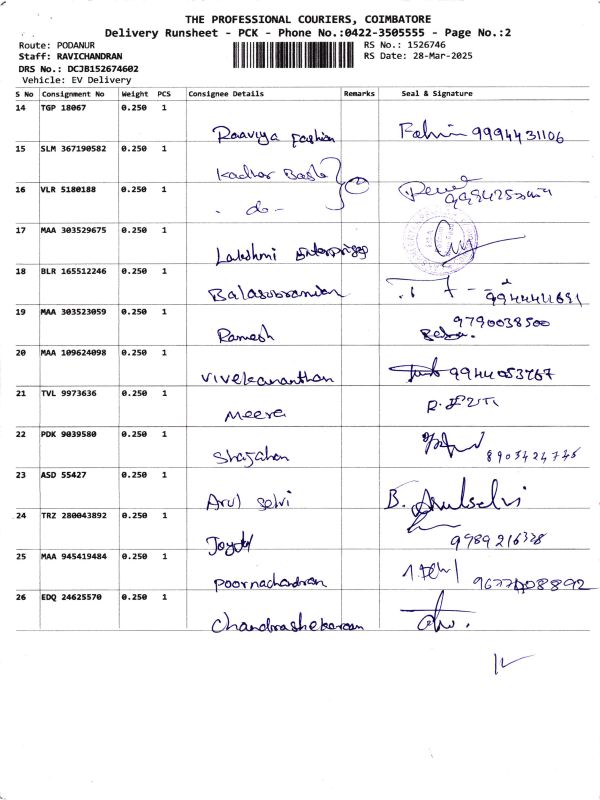 THE PROFESSIONAL COURIERS, COIMBATORE
Delivery Runsheet - PCK - Phone No.:0422-3505555 - Page No.:2
Route: PODANUR
RS No.: 1526746
Staff: RAVICHANDRAN
RS Date: 28-Mar-2025
DRS No.: DCJB152674602
Vehicle: EV Delivery
S No Consignment No Weight PCS Consignee Details Remarks Seal & Signature
14 TGP 18067 0.250 1
Raaviya fashion Fahmi 9994431106
15 SLM 367190582 0.250 1
Kadhar Basha
16 VLR 5180188 0.250 1
- do - 2
17 MAA 303529675 0.250 1
Lakshmi Enterprises
18 BLR 165512246 0.250 1
Balasubramanian 9944441691
19 MAA 303523059 0.250 1
Ramesh 9790038500
20 MAA 109624098 0.250 1
Vivekananthan 9944053767
21 TVL 9973636 0.250 1
Meera
22 PDK 9039580 0.250 1
Shajahan 8903424745
23 ASD 55427 0.250 1
Arul Selvi B. Arulselvi
24 TRZ 280043892 0.250 1
9789216328
25 MAA 945419484 0.250 1
Poornachandran 9677408892
26 EDQ 24625570 0.250 1
Chandrashekaran